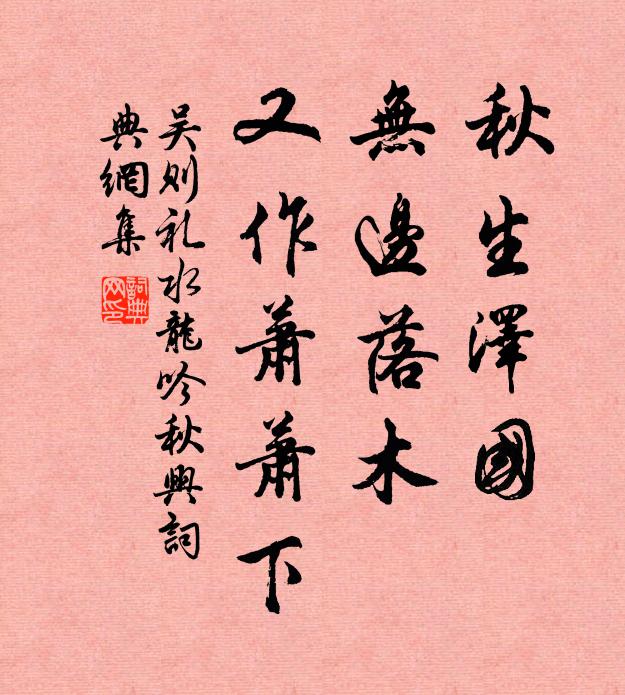 秋生澤國
無邊落木
又作蕭蕭下
吴则礼水龍吟秋興詞
典網集
詞典網印